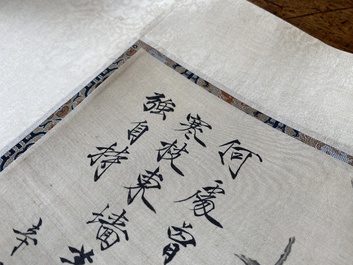 何處曾
寒枝東墻
強自持
辛